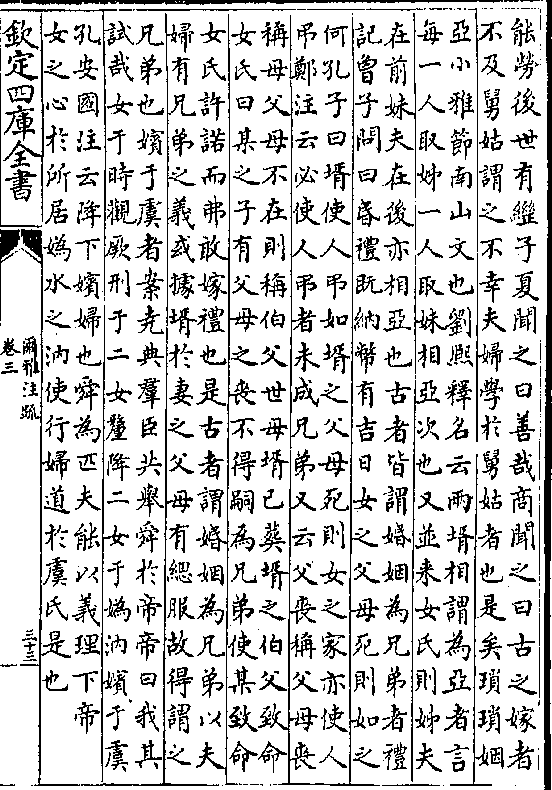 能勞後世有繼子夏聞之曰善哉商聞之曰古之嫁者
不及舅姑謂之不幸夫婦學於舅姑者也是矣瑣瑣姻
亞小雅節南山文也劉熈釋名云兩壻相謂為亞者言
每一人取姊一人取妹相亞次也又並来女氏則姊夫
在前妹夫在後亦相亞也古者皆謂婚姻為兄弟者禮
記曾子問曰昏禮既納幣有吉日女之父母死則如之
何孔子曰壻使人弔如壻之父母死則女之家亦使人
弔鄭注云必使人弔者未成兄弟又云父喪稱父母喪
稱母父母不在則稱伯父世母壻已葬壻之伯父致命
女氏曰某之子有父母之喪不得嗣為兄弟使某致命
女氏許諾而弗敢嫁禮也是古者謂婚姻為兄弟以夫
婦有兄弟之義或據壻於妻之父母有緦服故得謂之
兄弟也嬪于虞者案堯典羣臣共舉舜於帝帝曰我其
試哉女于時觀厥刑于二女釐降二女于媯汭嬪于虞
孔安國注云降下嬪婦也舜為匹夫能以義理下帝
女之心於所居媯水之汭使行婦道於虞氏是也
欽定四庫全書
爾雅注疏
卷三
三十三